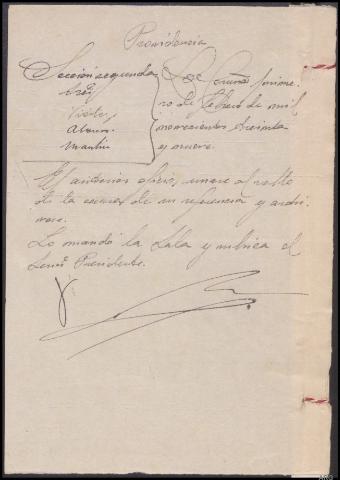 Providencia
Sección segunda
Sres
Vistos
Alonso
La Coruña prime-
ro de febrero de mil
novecientos treinta
y nueve.
El anterior oficio, unase al rollo
de la causa de su referencia y archi-
vese.
Lo mandó la Sala y rubrica el
Señor Presidente.